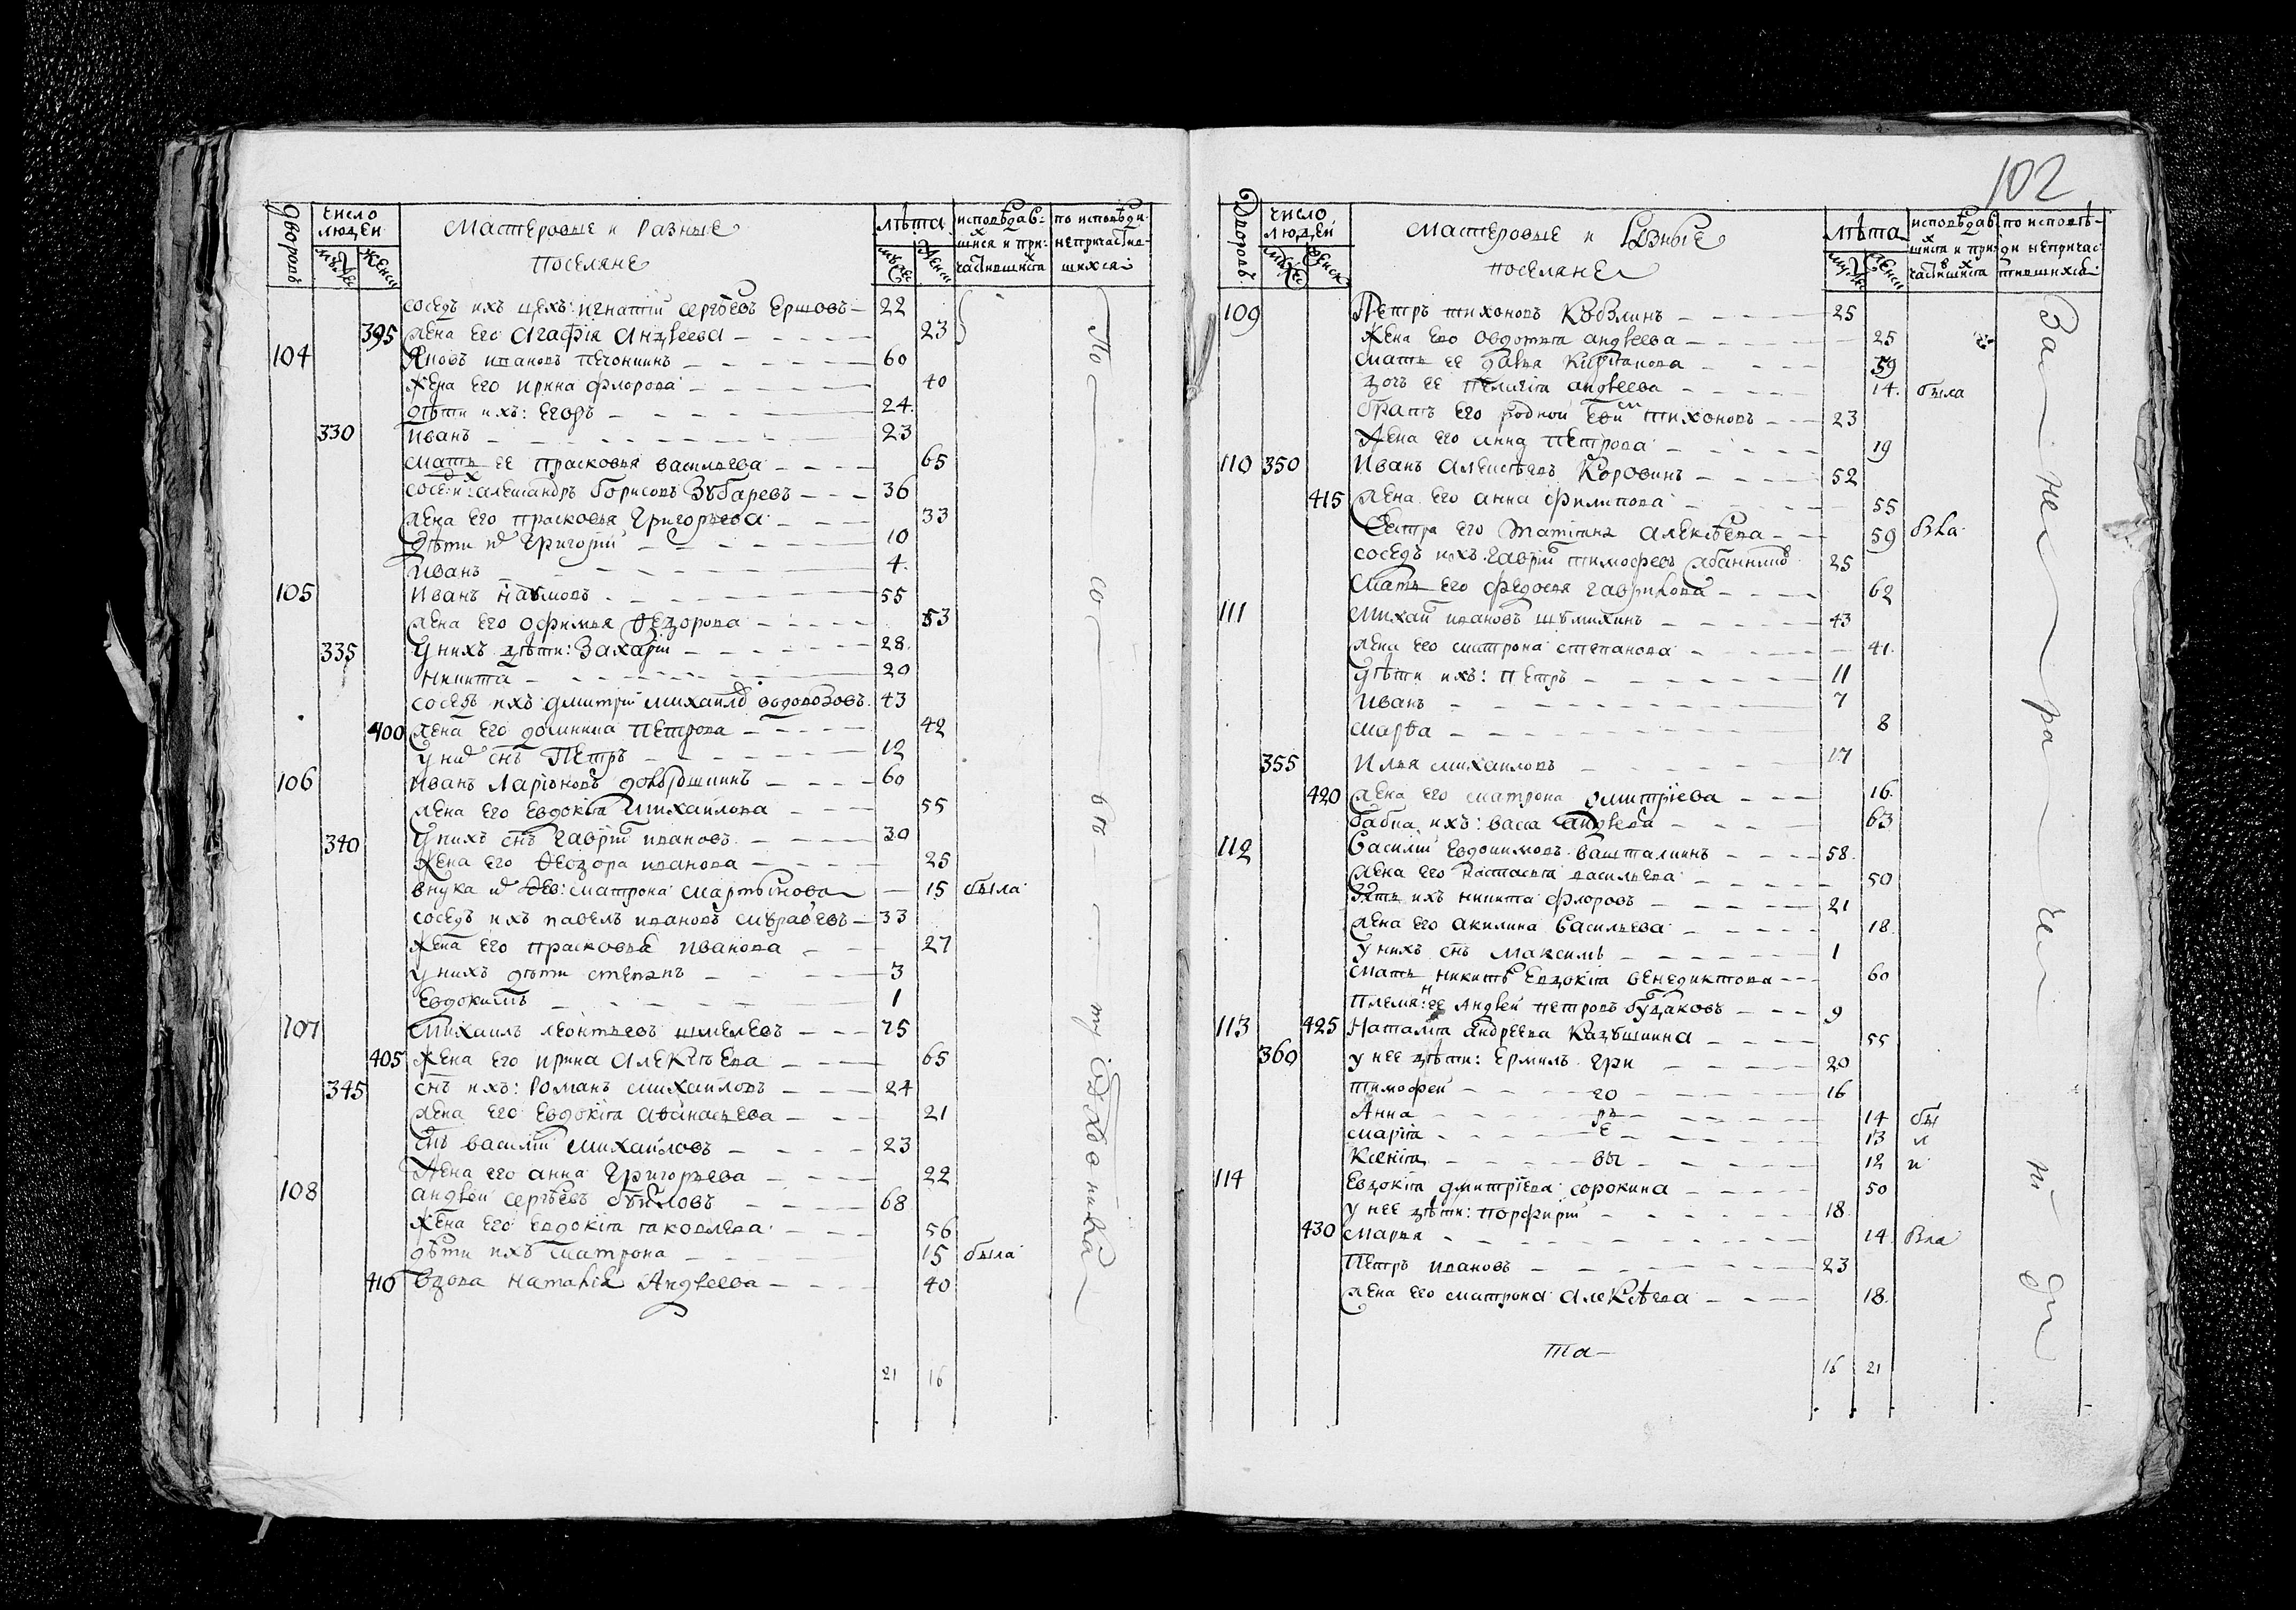 дворовъ число людей Мастеровые и Разные Поселяне лѣта исповѣдавшихся и причастившихся по исповѣди непричастившихся
мужс женск мужс женс
сосѣдъ ихъ цех: игнатій сергѣевъ Ершовъ 22
395 жена его Агафія Андреева 23
104 Яковъ ивановъ Печонкинъ 60
жена его ирина флорова 40
дѣти ихъ: Егоръ 24
330 иванъ 23
мать ее прасковья васильева 65
алеѯандръ борисовъ Зубаревъ 36
жена его прасковья григорьева 33
дѣти их григорій 10
иванъ 4
105 иванъ наумовъ 55
жена его офимья Ѳедорова 53
335 у нихъ дѣти: Захарій 28
никита 20
сосѣдъ ихъ дмитрій михаилов водовозовъ 43
400 жена его домникиа Петрова 42
у них снъ Петръ 12
106 иванъ Ларіоновъ 60
жена его Евдокія михаилова 55
340 у нихъ снъ гавріил ивановъ 30
жена его Ѳеодора иванова 25
внука их дев: матрона мартынова 15 была
сосѣдъ ихъ павелъ ивановъ муравьевъ 33
жена его прасковья иванова 27
у нихъ дѣти степанъ 3
Евдокимъ 1
107 михаилъ леонтьевъ шмелевъ 75
405 жена его ирина алексѣева 65
345 снъ ихъ: романъ михаиловъ 24
жена его Евдокія аѳанасьева 21
снъ василій михаиловъ 23
жена его анна григорьева 22
108 андрей сергѣевъ 68
жена его Евдокія яковлева 56
дѣти ихъ матрона 15 была
410 вдова наталія Андреева 40
21 16
102
дворовъ число людей Мастеровые и Разные поселяне лѣта исповѣдавшихся и причастившихся по исповѣди непричастившихся
мужс женск мужс женс
109 Петръ тихоновъ 25
жена его авдотья андреева 25
мать ее дарья 59
дочь ее пелагія андреева 14 была
братъ его родной тихоновъ 23
жена его анна петрова 19
110 350 иванъ алексѣевъ Коровинъ 52
415 жена его анна филипова 55
сестра его татіана алексѣева 59
сосѣдъ ихъ гавріил тимофеевъ 25
мать его федосья гаврилова 62
111 михаил ивановъ 43
жена его матрона степанова 41
дѣти ихъ: петръ 11
иванъ 7
марѳа 8
355 илья михаиловъ 17
420 жена его матрона дмитріева 16
бабка ихъ: васса андреева 63
112 василій Евдокимовъ 58
жена его настасья васильева 50
зять ихъ никита флоровъ 21
жена его акилина васильева 18
у нихъ снъ максимъ 1
мать никиты Евдокія венедиктова 60
племян: ее андрей петровъ 9
113 425 наталія андреева 55
360 у нее дѣти: Ермилъ гри 20
тимофей го 16
анна рь 14 бы
марія е 13 л
Ксенія вы 12 и
114 Евдокія дмитріева сорокина 50
у нее дѣти: порфирій 18
430 марья 14
Петръ ивановъ 23
жена его матрона алексѣева 18
та
16 21